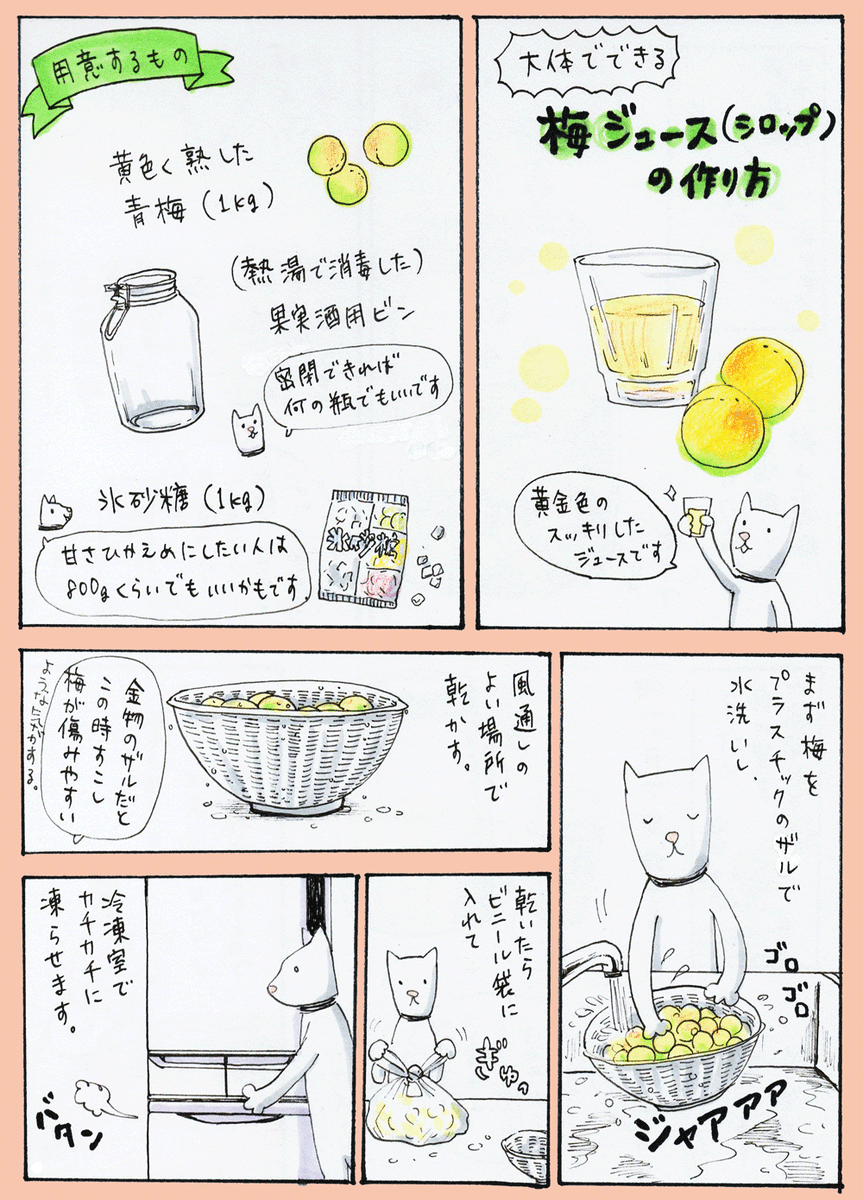 大体でできる
梅ジュース(シロップ)
の作り方
黄金色の
スッキリした
ジュースです
用意するもの
黄色く熟した
青梅(1kg)
(熱湯で消毒した)
果実酒用ビン
密閉できれば
何の瓶でもいいです
氷砂糖(1kg)
甘さひかえめにしたい人は
800gくらいでもいいかもです。
氷砂糖
まず梅を
プラスチックのザルで
水洗いし、
ゴロ
ゴロ
ジャアアア
風通しの
よい場所で
乾かす。
金物のザルだと
この時すこし
梅が傷みやすい
ような気がする。
乾いたら
ビニール袋に
入れて
ぎゅっ
冷凍室で
カチカチに
凍らせます。
バタン